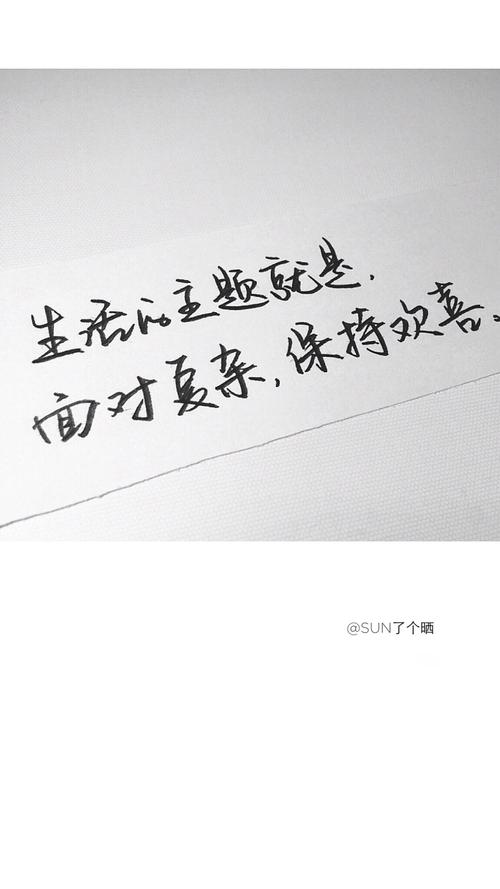 生活的主题就是,
面对复杂,保持欢喜。
@SUN了个晒